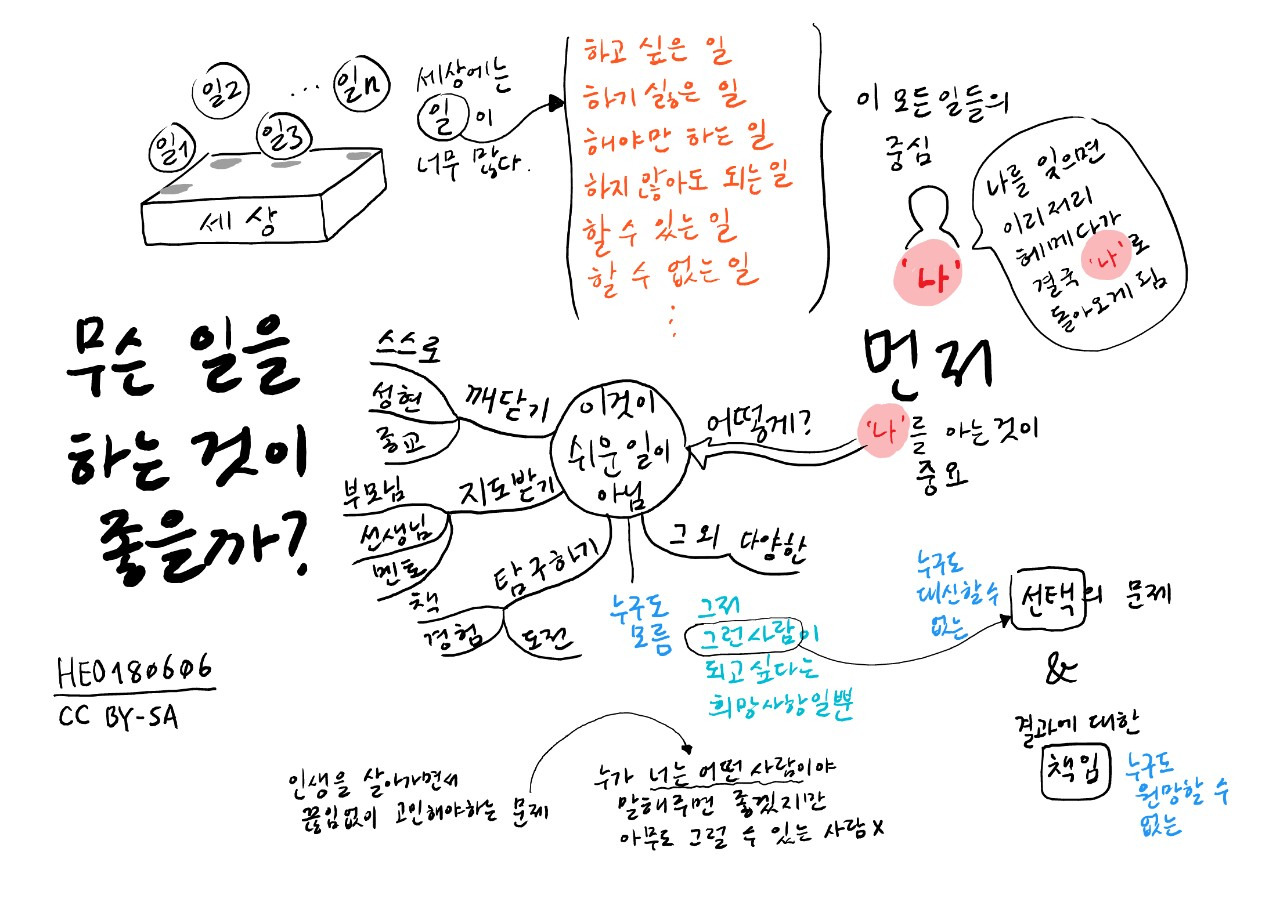 일1
일2
일3
...
일n
세상
세상에는
일이
너무 많다.
하고 싶은 일
하기 싫은 일
해야만 하는 일
하지 않아도 되는 일
할 수 있는 일
할 수 없는 일
⋮
이 모든 일들의
중심
'나'
나를 잊으면
이리저리
헤메다가
결국 '나'로
돌아오게 됨
무슨 일을
하는 것이
좋을까?
먼저
'나'를 아는 것이
중요
어떻게?
이것이
쉬운 일이
아님
깨닫기
스스로
성현
종교
지도받기
부모님
선생님
멘토
탐구하기
책
경험
도전
그 외 다양한
누구도
모름
그저
그런 사람이
되고 싶다는
희망사항일뿐
누구도
대신할 수
없는
선택의 문제
&
결과에 대한
책임
누구도
원망할 수
없는
HEO180606
CC BY-SA
인생을 살아가면서
끊임없이 고민해야하는 문제
누가 너는 어떤 사람이야
말해주면 좋겠지만
아무도 그럴 수 있는 사람 X